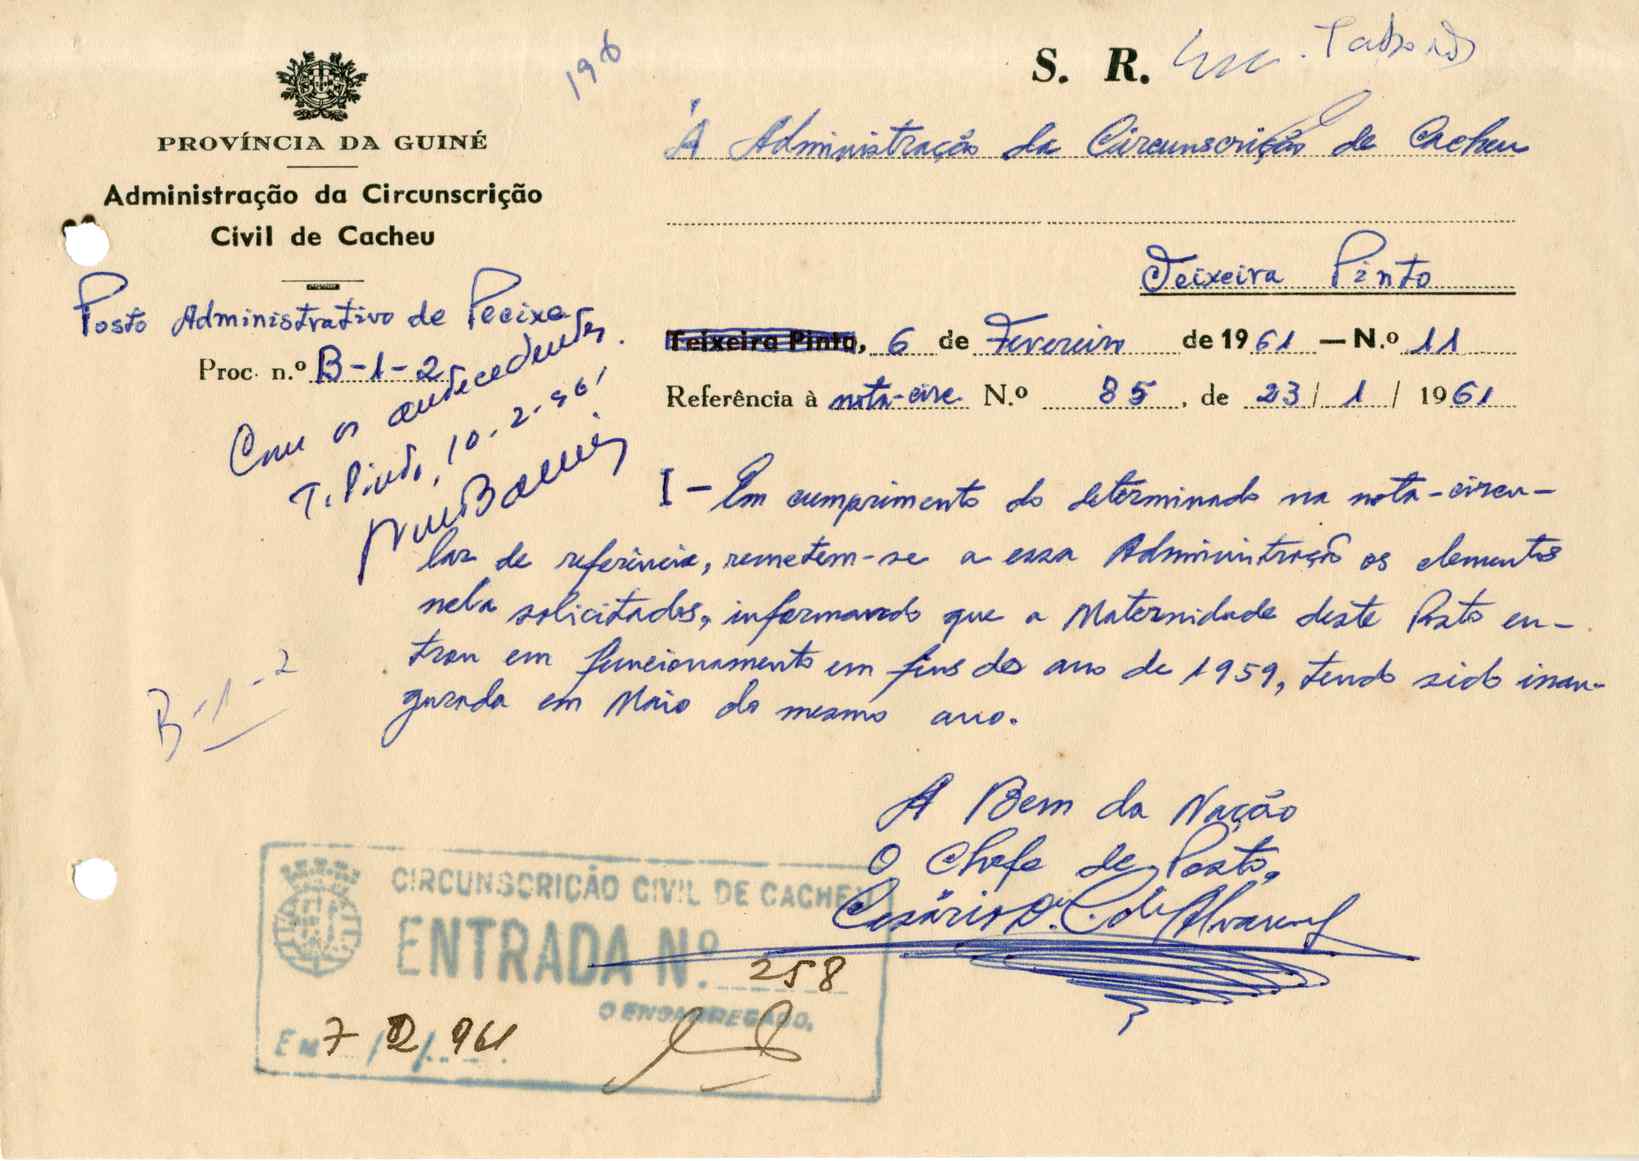 196
S. R.
PROVÍNCIA DA GUINÉ
Administração da Circunscrição
Civil de Cacheu
À Administração da Circunscrição de Cacheu
Teixeira Pinto
Posto Administrativo de Pecixe
Proc. n.º B-1-2
Teixeira Pinto, 6 de Fevereiro de 1961 — N.º 11
Referência à nota-circ. N.º 85, de 23/1/1961
Com os antecedentes.
T. Pinto, 10-2-961
I - Em cumprimento do determinado na nota-circu-
lar de referência, remetem-se a essa Administração os elementos
nela solicitados, informando que a Maternidade deste Posto en-
trou em funcionamento em fins do ano de 1959, tendo sido inau-
gurada em Maio do mesmo ano.
B-1-2
A Bem da Nação
O Chefe de Posto,
Cesário D. C. de Alvarenga
CIRCUNSCRIÇÃO CIVIL DE CACHEU
ENTRADA N.º 258
O ENCARREGADO,
Em 7/2/961